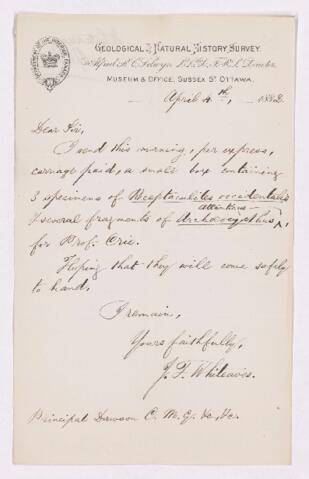 GEOLOGICAL & NATURAL HISTORY SURVEY.
Alfred R. C. Selwyn, LL.D., F.R.S., Director.
MUSEUM & OFFICE, SUSSEX ST OTTAWA.
April 4th, 1882.
Dear Sir,
I send this morning, per express,
carriage paid, a small box containing
3 specimens of Receptaculites occidentalis
& several fragments of Archaeocyathus ^,
for Prof.
Hoping that they will come safely
to hand,
I remain,
Yours faithfully,
J. F. Whiteaves.
Principal Dawson C. M. G. &c. &c.